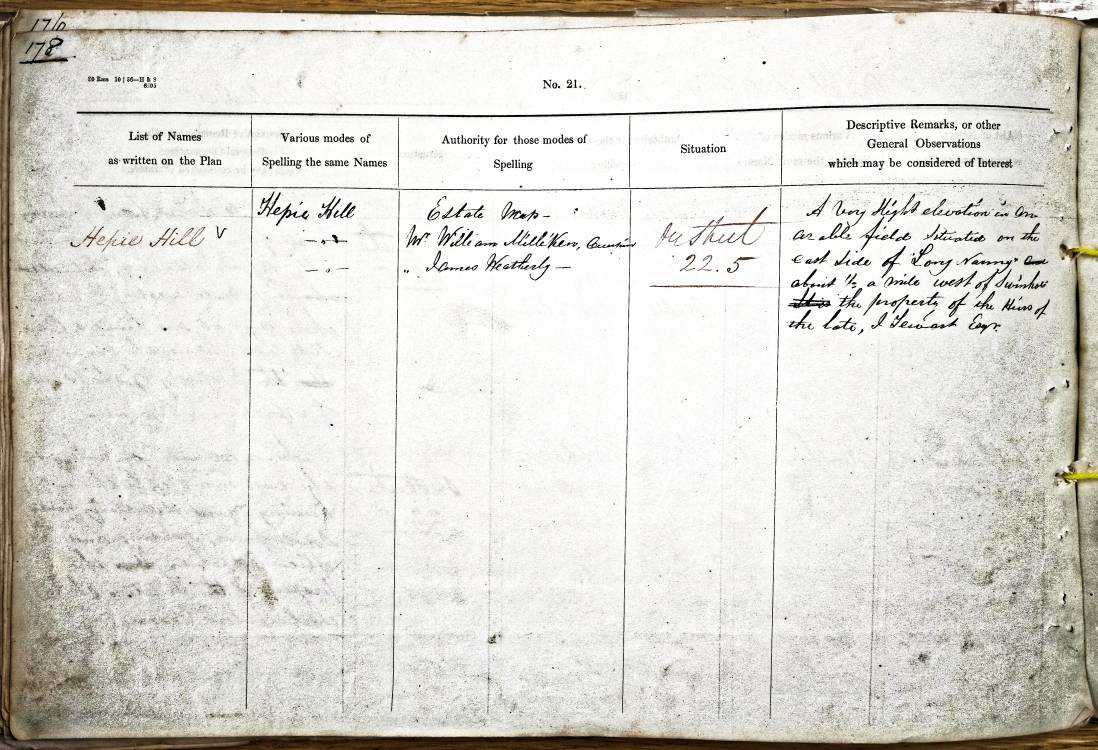 178
20 Rms 10 | 56—H & S
6.05
No. 21.
List of Names
as written on the Plan
Various modes of
Spelling the same Names
Authority for those modes of
Spelling
Situation
Descriptive Remarks, or other
General Observations
which may be considered of Interest
Hepie Hill
Hepie Hill
— „ —
— „ —
Estate Map —
Mr. William Milliken,
„ James Weatherly —
On Sheet
22.5
A Very Slight elevation in an
arable field Situated on the
East Side of "Long Nanny" and
about 1/2 a mile west of Swinhoe
It is the property of the Heirs of
the late, I Tewart Esqr.